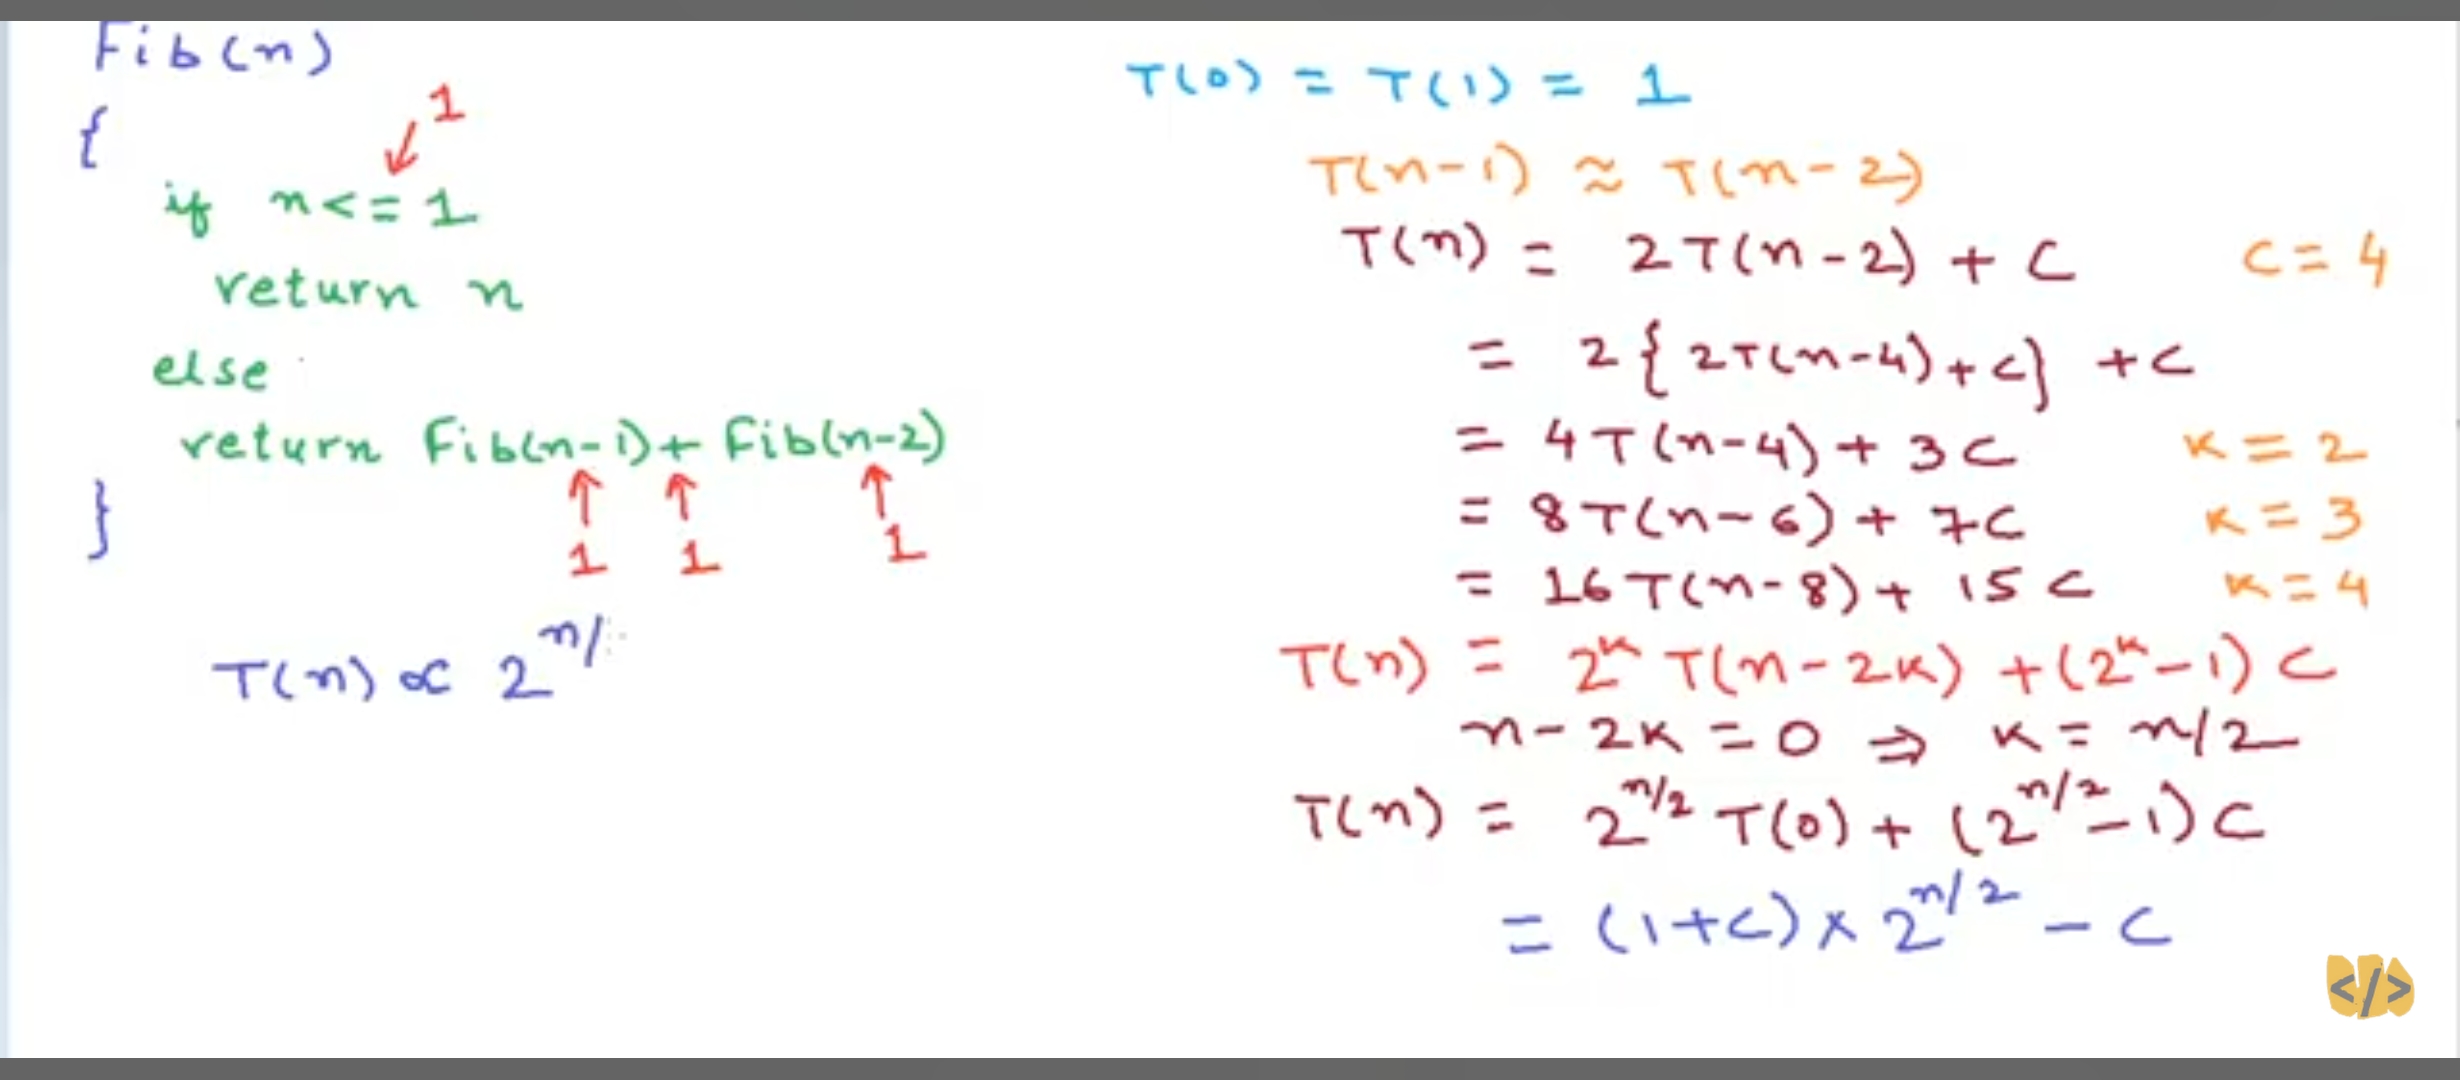 Fib(n)
{
1
if n<=1
return n
else
return Fib(n-1)+ Fib(n-2)
1 1 1
}
T(n) ∝ 2^n/
T(0) = T(1) = 1
T(n-1) ≈ T(n-2)
T(n) = 2T(n-2) + C C=4
= 2{2T(n-4)+C} +C
= 4T(n-4)+ 3C K=2
= 8T(n-6)+ 7C K=3
= 16T(n-8)+ 15C K=4
T(n) = 2^K T(n-2K) +(2^K-1)C
n-2K=0 ⇒ K= n/2
T(n) = 2^n/2 T(0)+ (2^n/2-1)C
= (1+C)× 2^n/2 - C
</>